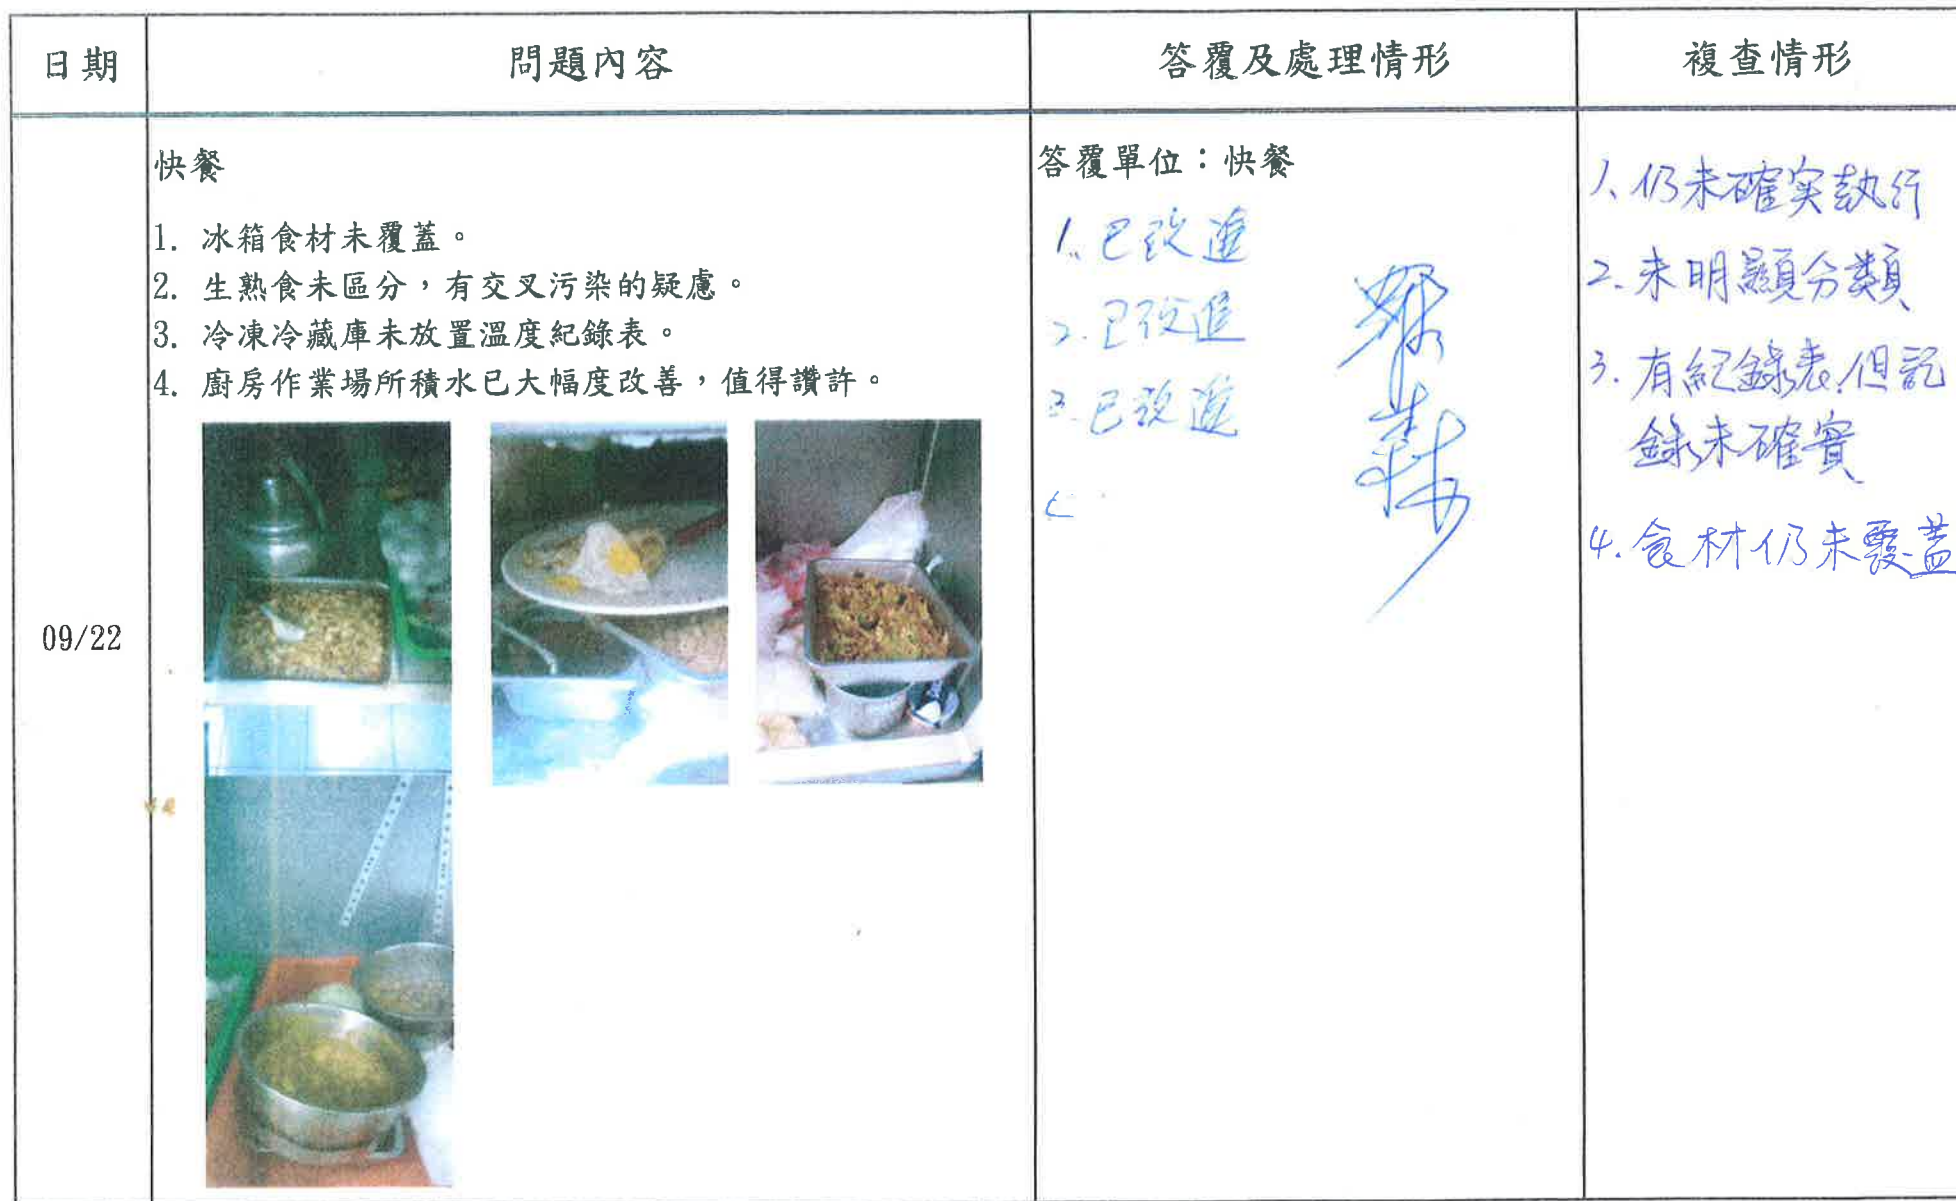 日期
問題內容
答覆及處理情形
複查情形
09/22
快餐
1. 冰箱食材未覆蓋。
2. 生熟食未區分，有交叉污染的疑慮。
3. 冷凍冷藏庫未放置溫度紀錄表。
4. 廚房作業場所積水已大幅度改善，值得讚許。
答覆單位：快餐
1. 已改進
2. 已改進
3. 已改進
1、仍未確实執行
2. 未明顯分類
3. 有紀錄表，但記
錄未確實
4. 食材仍未覆蓋